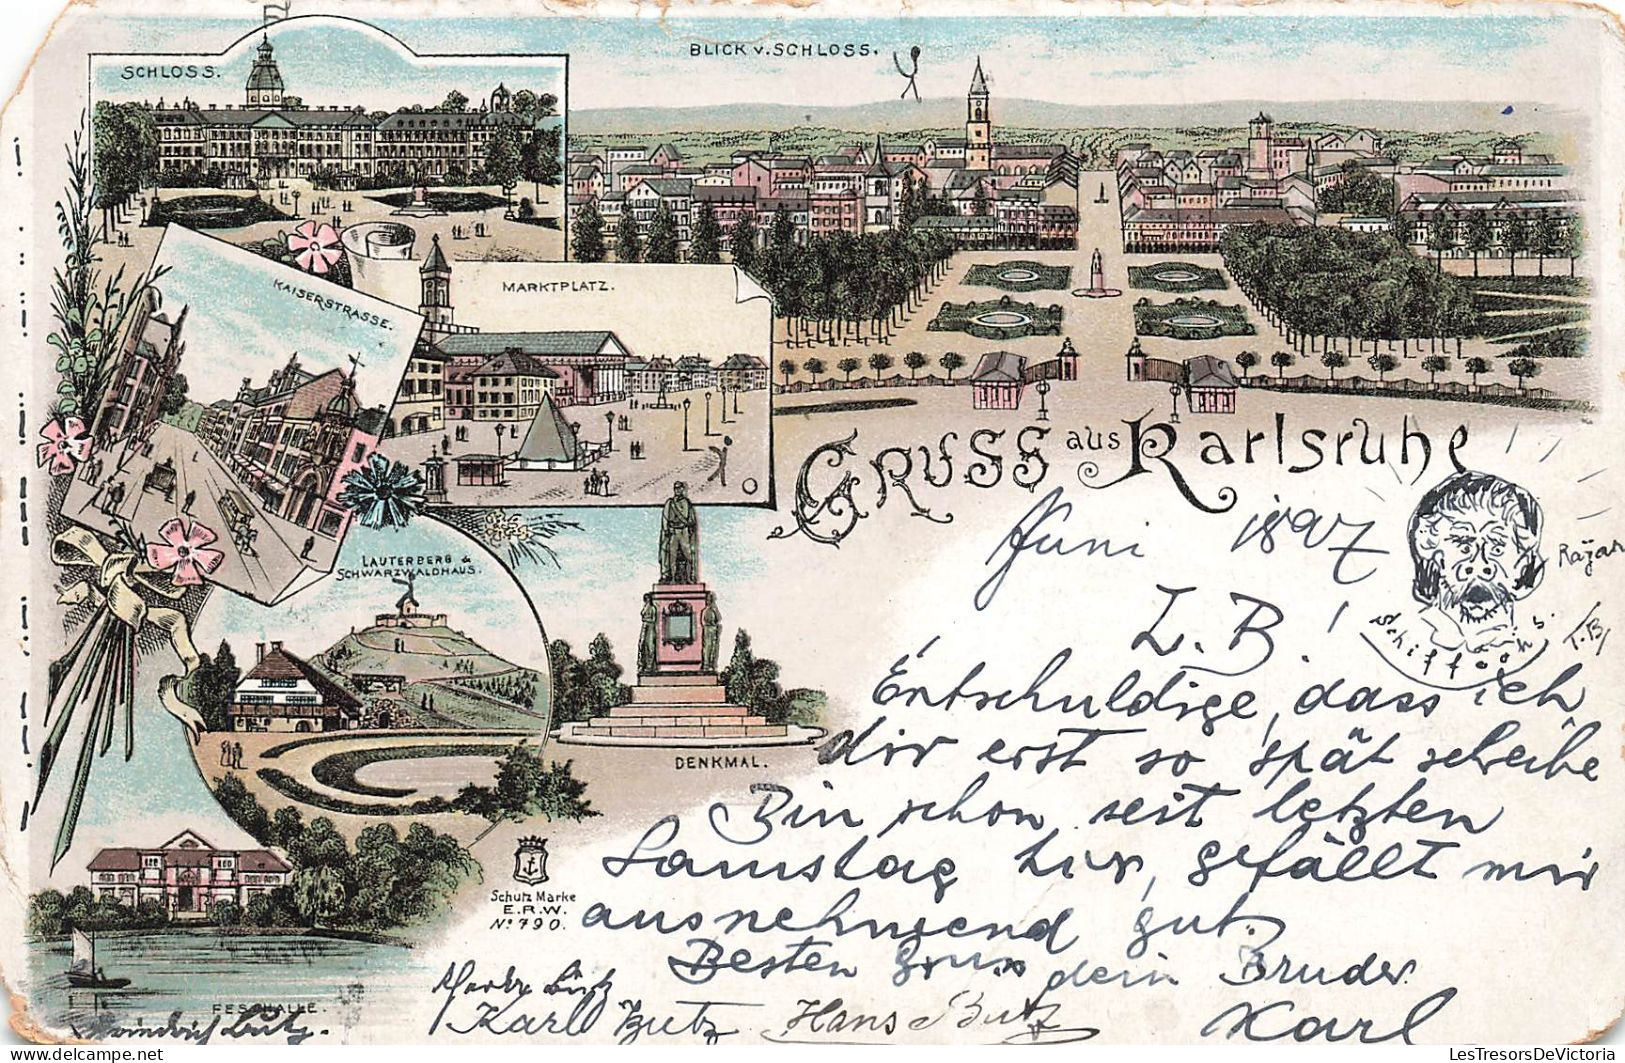 SCHLOSS.
BLICK v. SCHLOSS.
KAISERSTRASSE.
MARKTPLATZ.
GRUSS aus Karlsruhe
LAUTERBERG &
SCHWARZWALDHAUS.
DENKMAL.
Schutz Marke
E.R.W.
No. 790.
FESTHALLE.
Juni 1897
L. B!
Entschuldige, dass ich
dir erst so spät schreibe
Bin schon seit letzten
Samstag hier, gefällt mir
ausnehmend gut.
Besten Gruss dein Bruder
Karl
Karl Butz Hans Butz
T.B.
LesTresorsDeVictoria